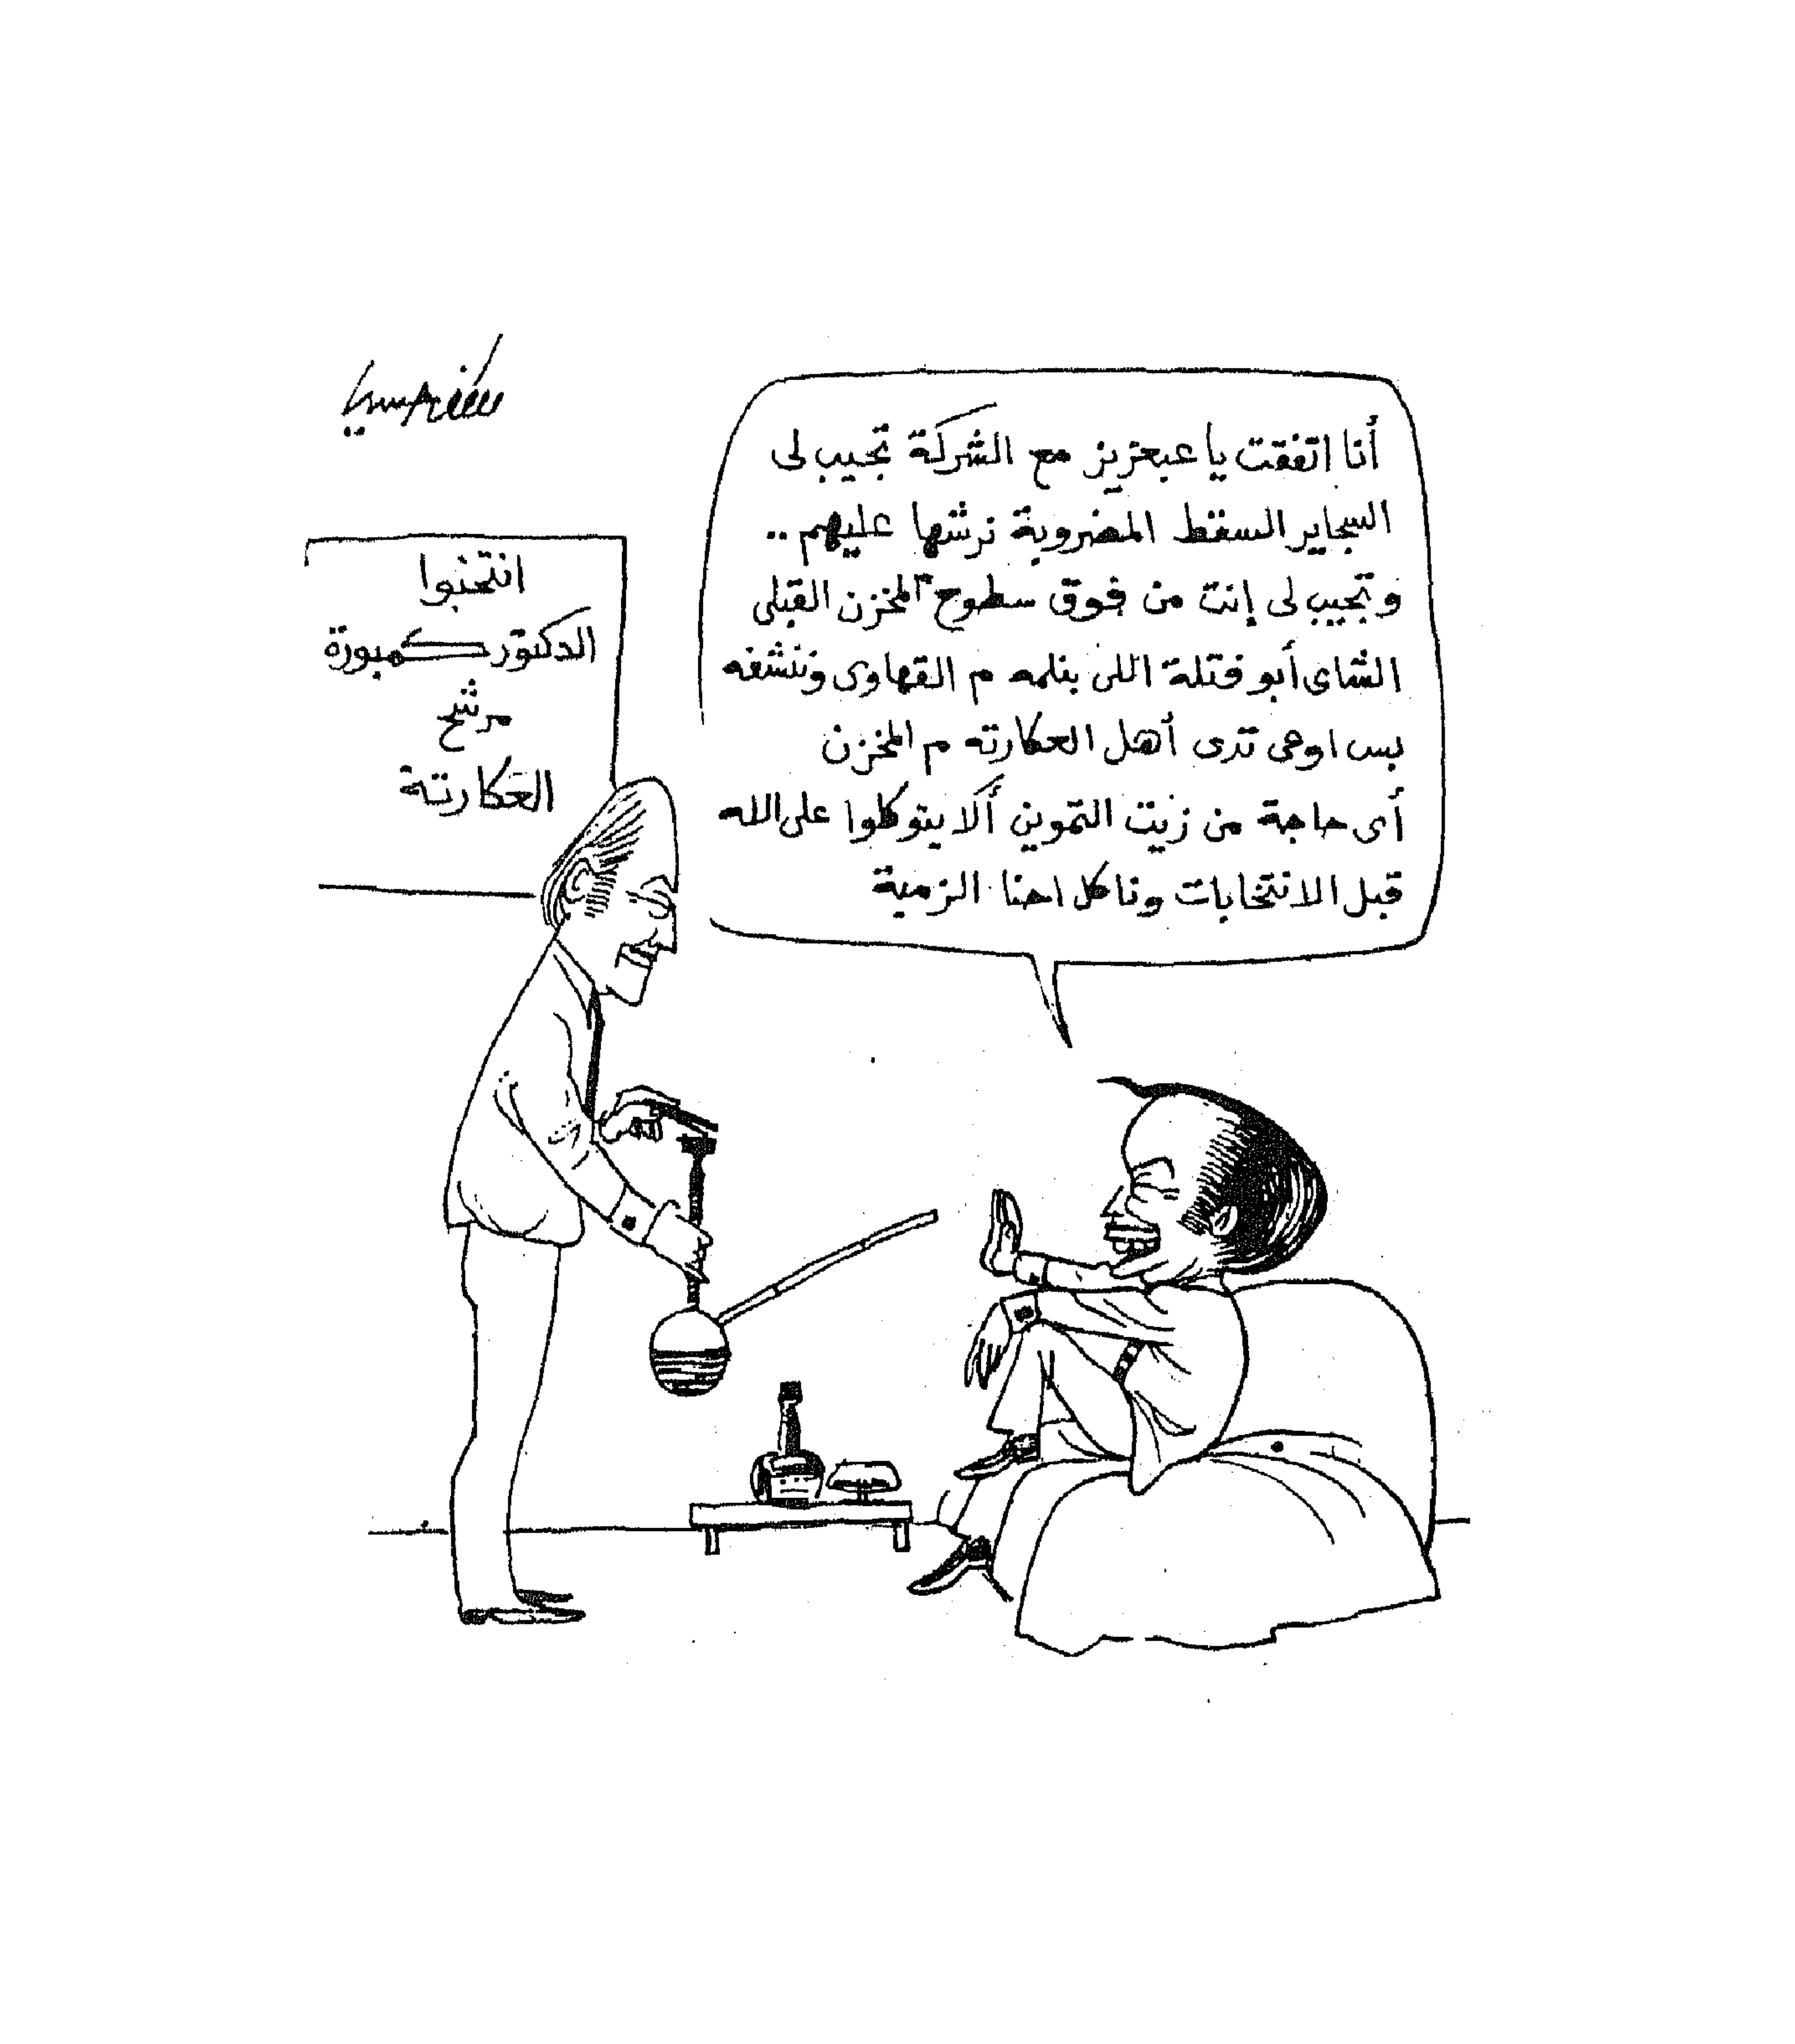 أنا اتفقت يا عبعزيز مع الشركة تجيب لى
السجاير السقط المضروبة نرشها عليهم ..
وتجيب لى إنت من فوق سطوح المخزن القبلى
الشاى أبو فتلة اللى بنلمه م القهاوى وننشفه
بس اوعى تدى أهل العكارته م المخزن
أى حاجة من زيت التموين ألا يتوكلوا على الله
قبل الانتخابات وناكل احنا الزمبة
انتخبوا
الدكتور كمبورة
مرشح
العكارتة